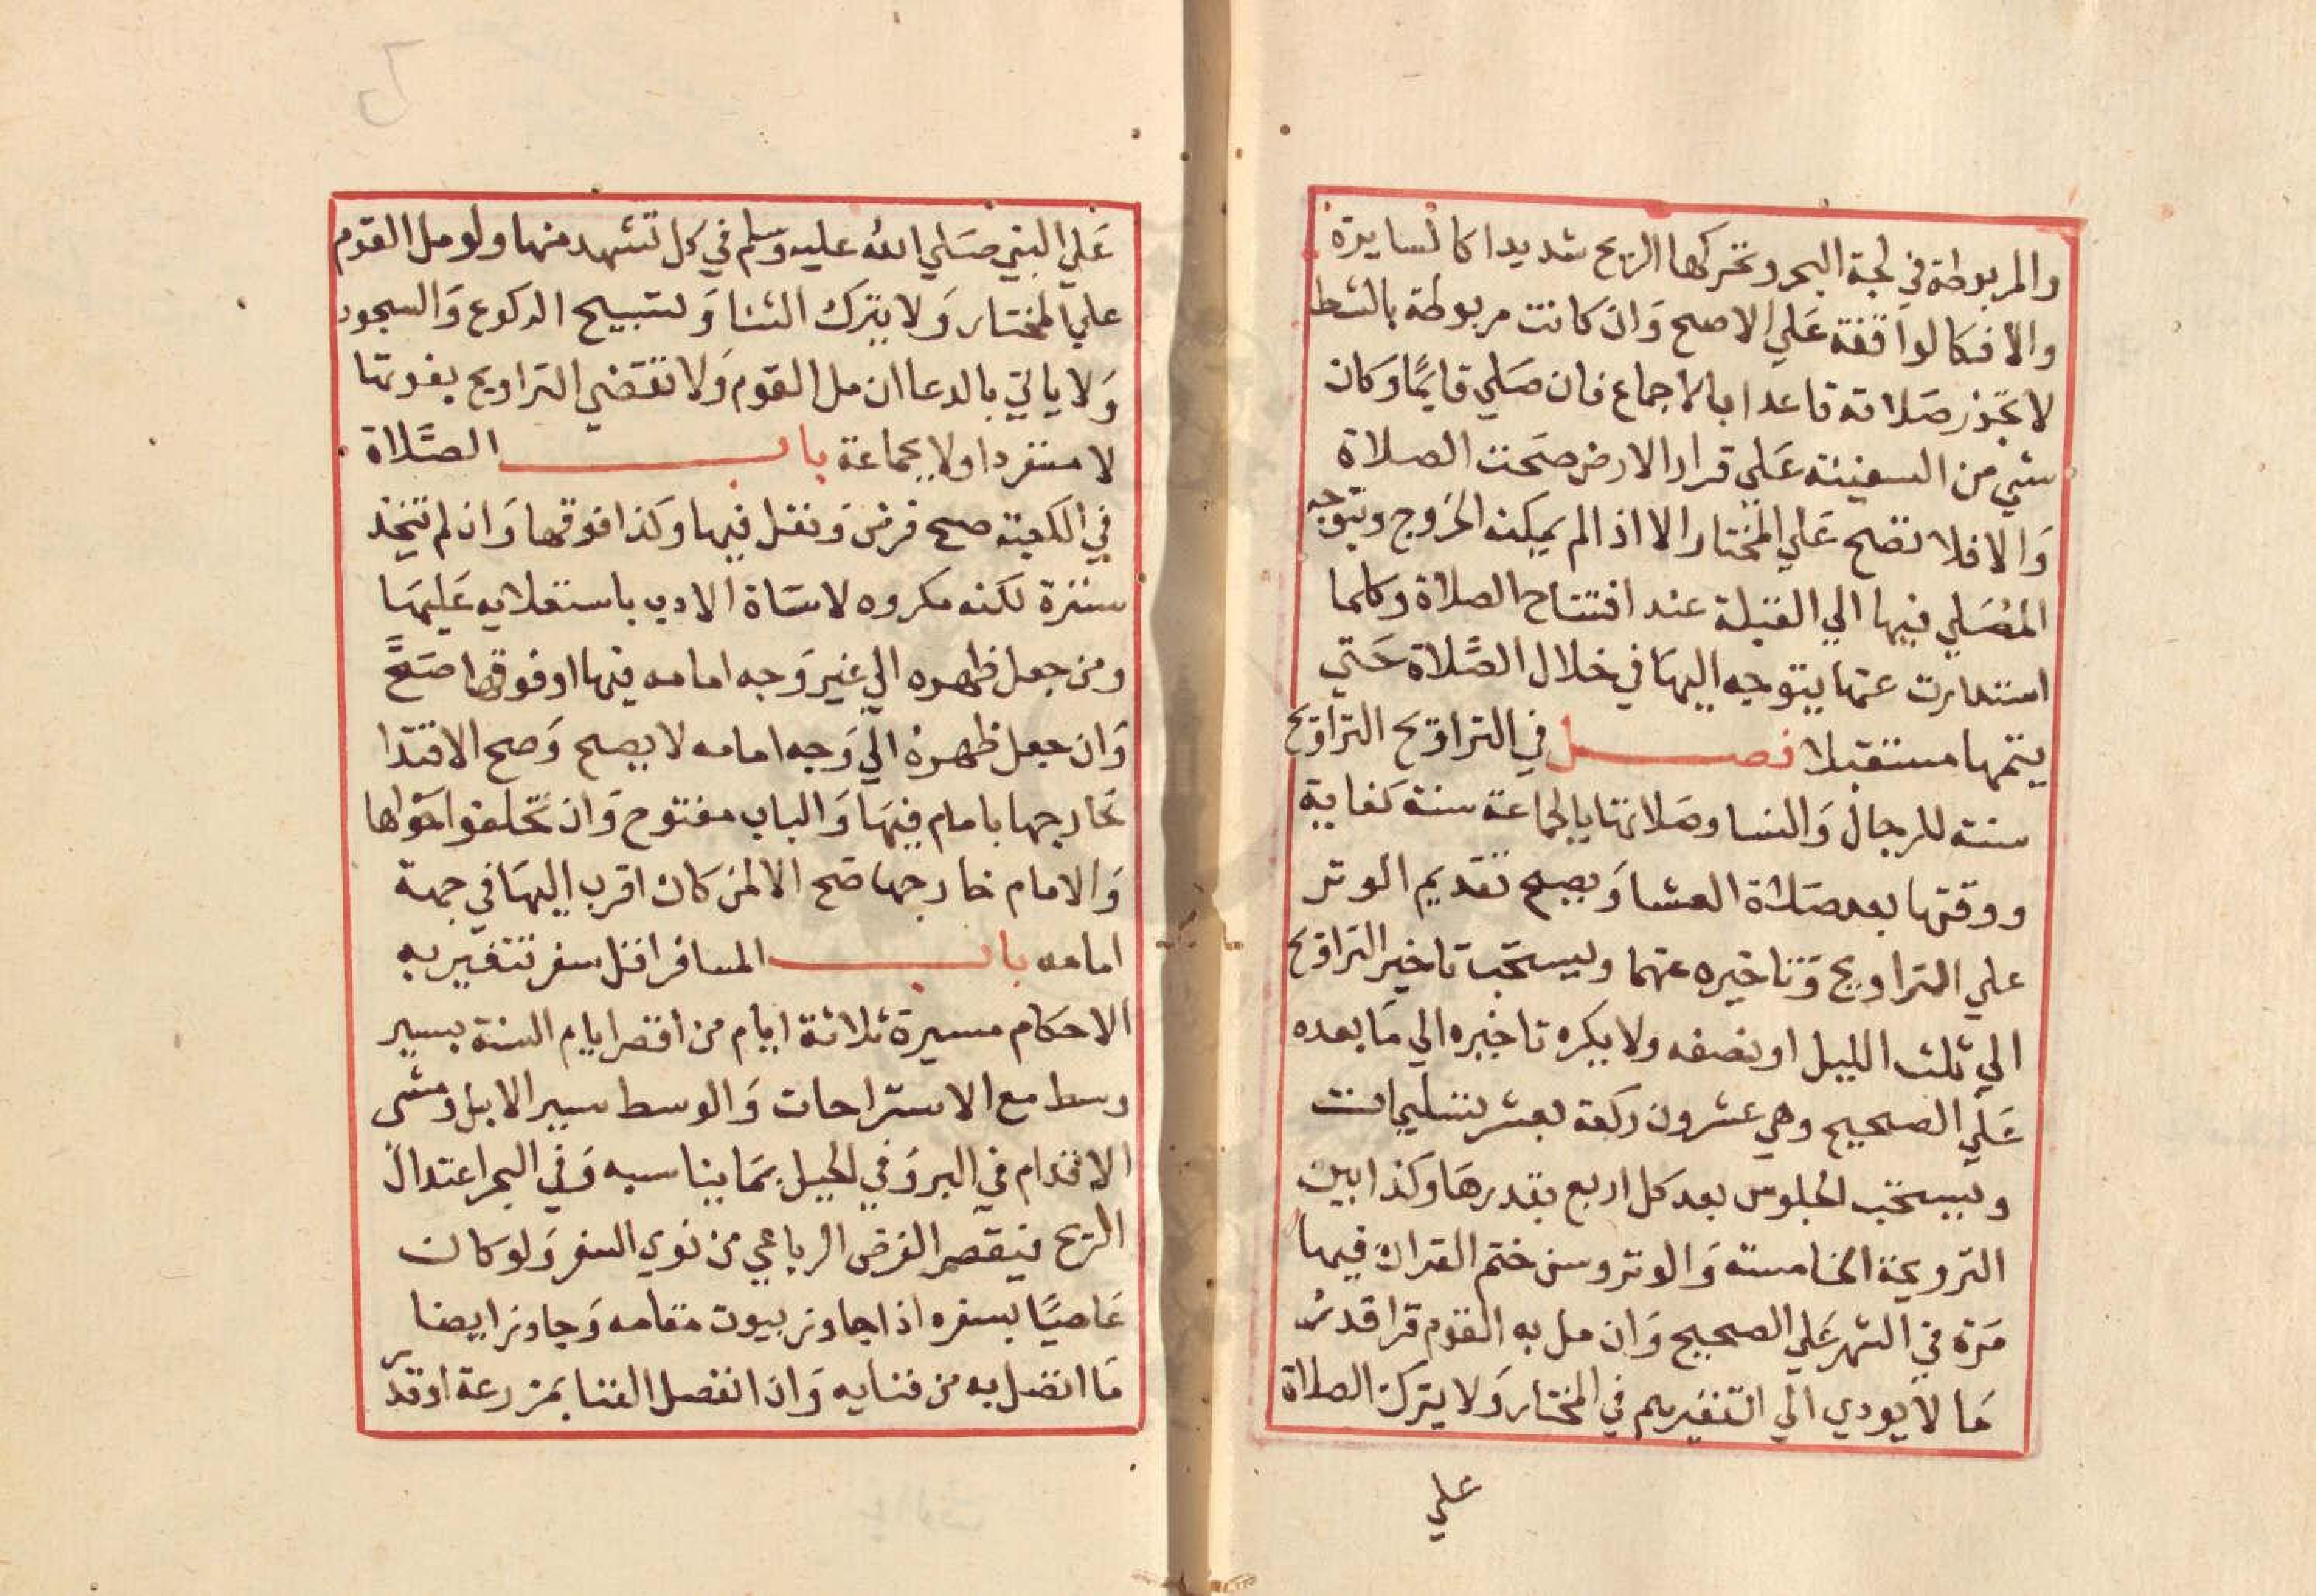 والمربوطة في لجة البحر وتحركها الريح شديدا كالسايرة
والا فكالواقفة علي الاصح وان كانت مربوطة بالشط
لا تجوز صلاته قاعدا بالاجماع فان صلي قايما وكان
شي من السفينة علي قرار الارض صحت الصلاة
والا فلا تصح علي المختار الا اذا لم يمكنه الخروج ويتوجه
المصلي فيها الي القبلة عند افتتاح الصلاة وكلما
استدارت عنها يتوجه اليها في خلال الصلاة حتي
يتمها مستقبلا فصل في التراويح التراويح
سنة للرجال والنسا وصلاتها بالجماعة سنة كفاية
ووقتها بعد صلاة العشا ويصح تقديم الوتر
علي التراويح وتاخيره عنها ويستحب تاخير التراويح
الي ثلث الليل او نصفه ولا يكره تاخيره الي ما بعده
علي الصحيح وهي عشرون ركعة بعشر تسليمات
ويستحب الجلوس بعد كل اربع بقدرها وكذا بين
الترويحة الخامسة والوتر وسن ختم القران فيها
مرة في الشهر علي الصحيح وان مل به القوم قرا قدر
ما لا يودي الي تنفيرهم في المختار ولا يترك الصلاة
علي
علي النبي صلي الله عليه وسلم في كل تشهد منها ولو مل القوم
علي المختار ولا يترك الثنا وتسبيح الركوع والسجود
ولا ياتي بالدعا ان مل القوم ولا تقضي التراويح بفوتها
لا منفردا ولا بجماعة باب الصلاة
في الكعبة صح فرض ونفل فيها وكذا فوقها وان لم تتخذ
سترة لكنه مكروه لاساة الادب باستعلايه عليها
ومن جعل ظهره الي غير وجه امامه فيها او فوقها صح
وان جعل ظهره الي وجه امامه لا يصح وصح الاقتدا
خارجها بامام فيها والباب مفتوح وان تحلقوا حولها
والامام خارجها صح الا لمن كان اقرب اليها في جهة
امامه باب المسافر اقل سفر تتغير به
الاحكام مسيرة ثلاثة ايام من اقصر ايام السنة بسير
وسط مع الاستراحات والوسط سير الابل ومشي
الاقدام في البر وفي الجبل بما يناسبه وفي البحر اعتدال
الريح فيقصر الفرض الرباعي من نوي السفر ولو كان
عاصيا بسفره اذا جاوز بيوت مقامه وجاوز ايضا
ما اتصل به من فنايه وان انفصل الفنا بمزرعة او قدر